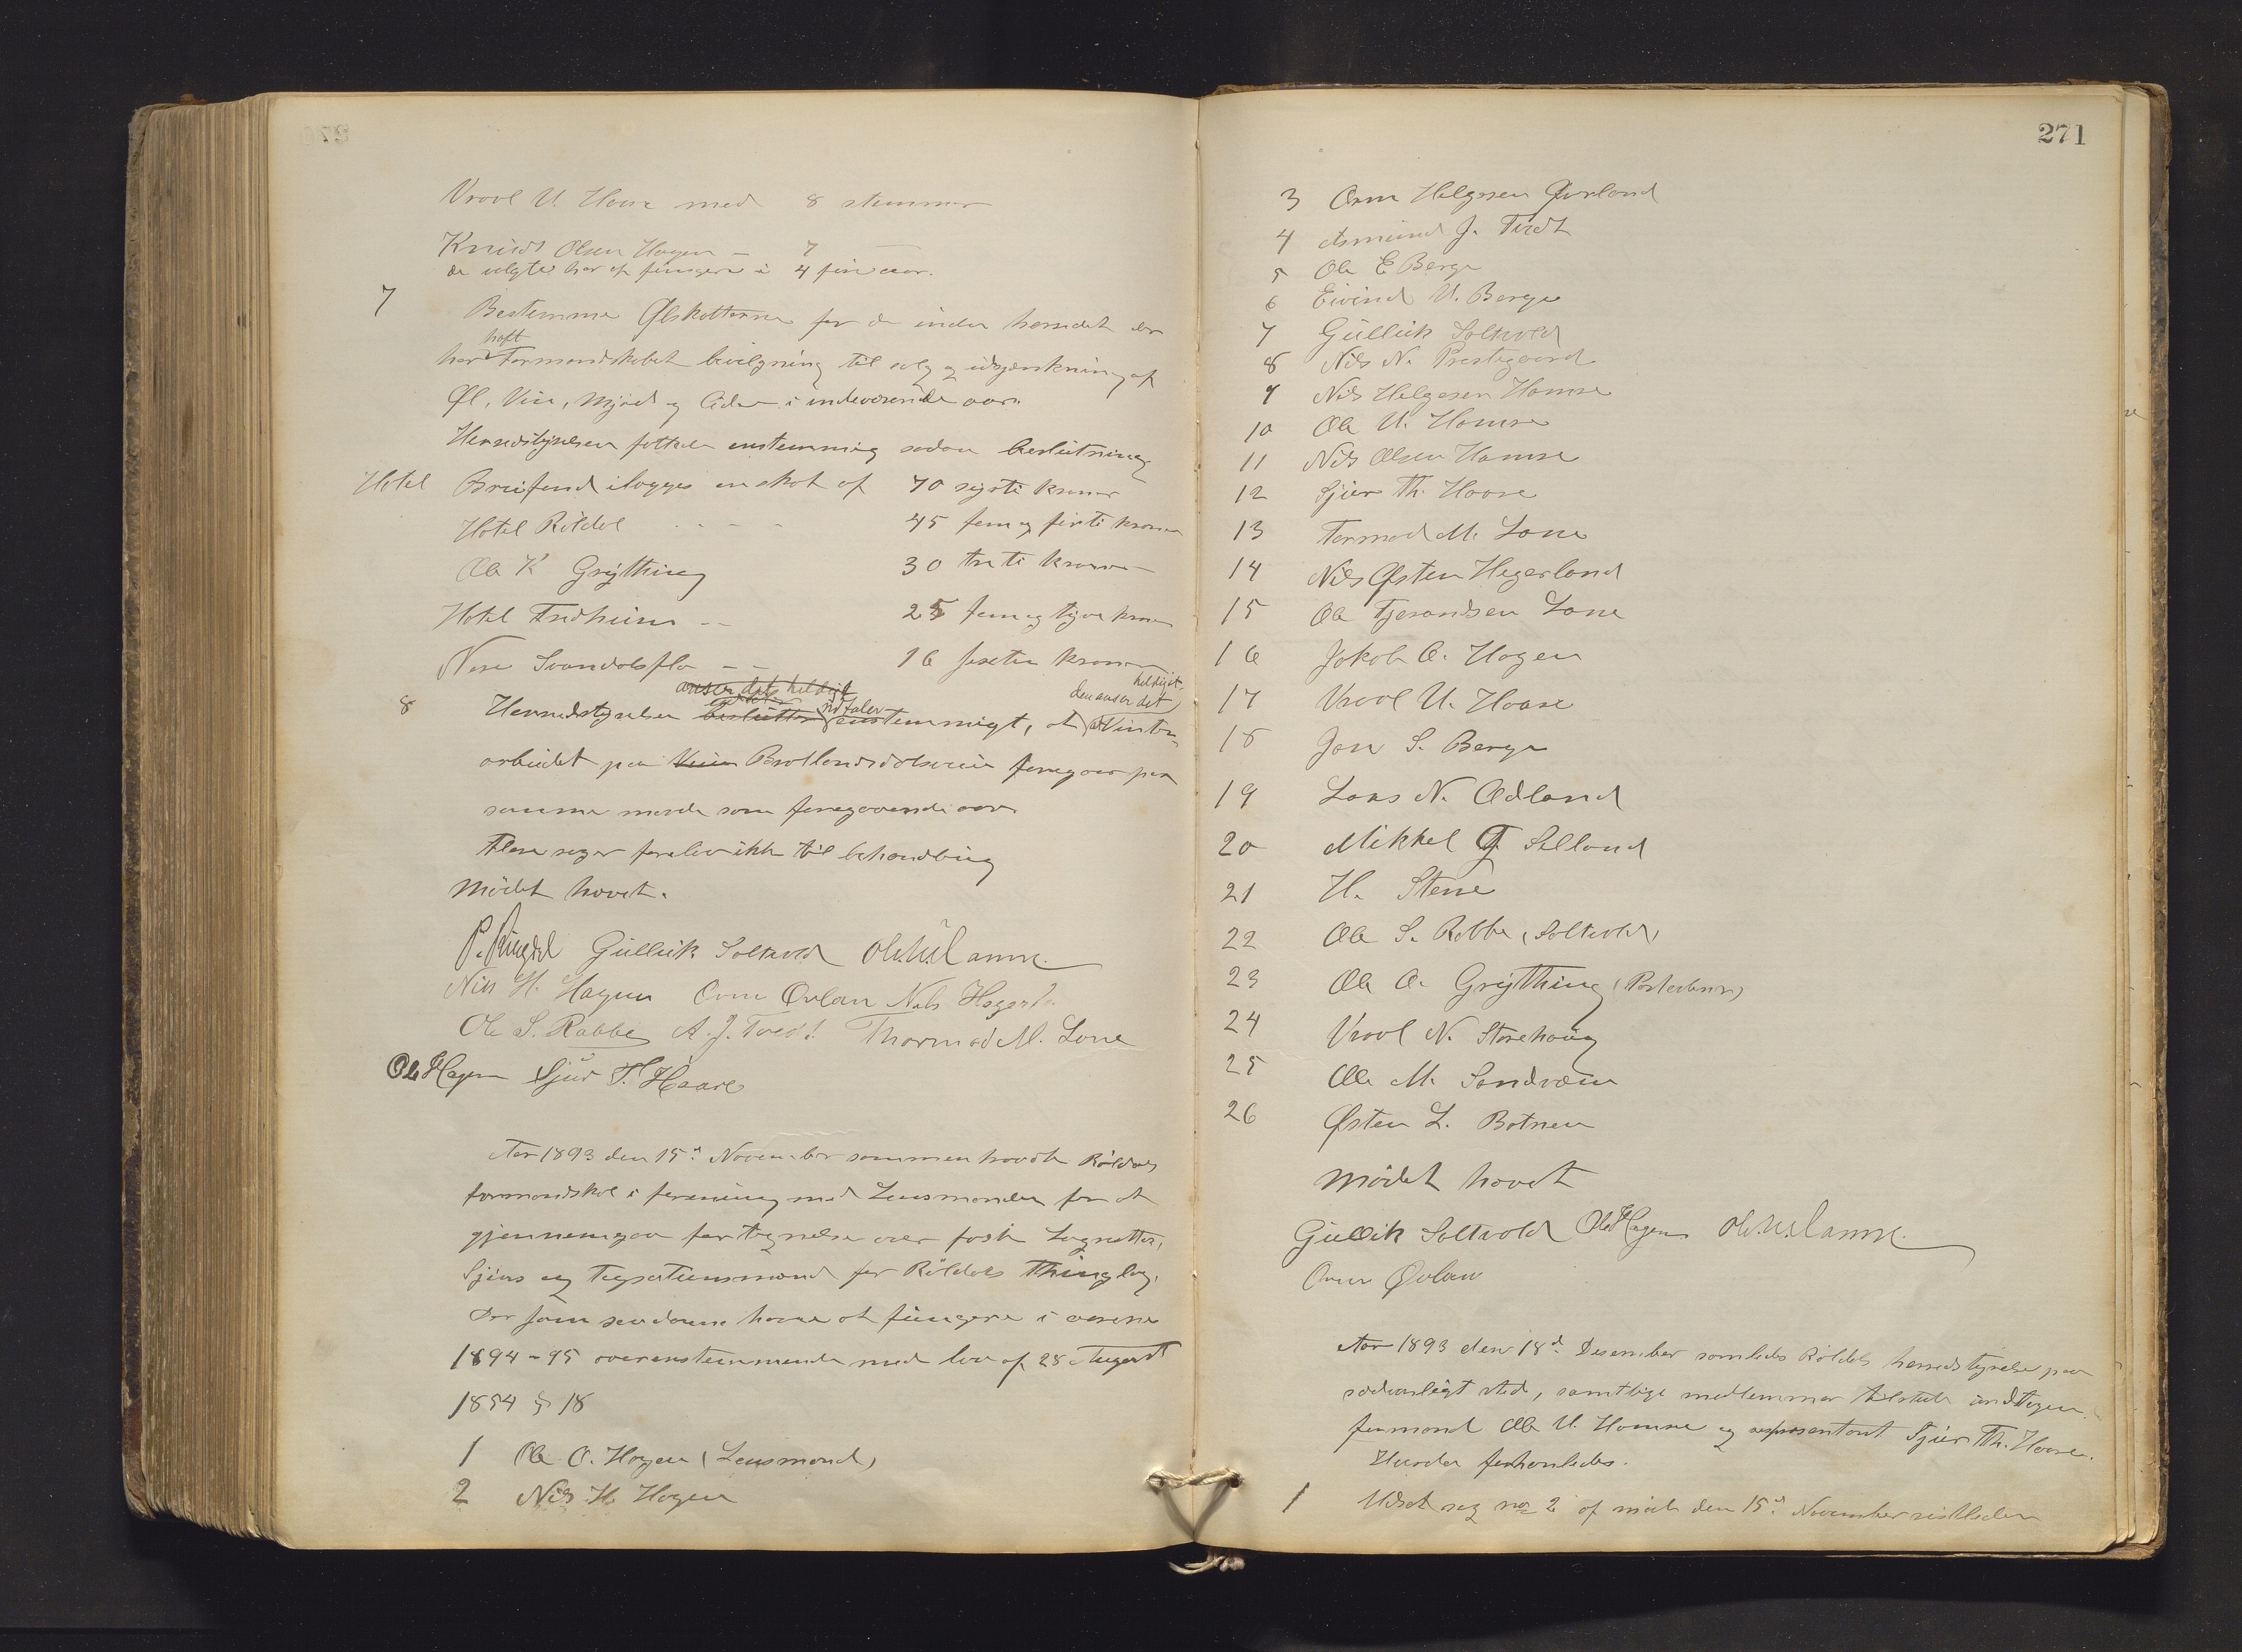 Vraal U. Haare med 8 stemmer
Knudt Olsen Hagen – 7 —
de valgte har at fungere i 4 fire aar.
7 Bestemme Ølskatterne for de inden herredet der
haft
har Formandskabet bevilgning til salg og udskjænkning af
Øl, Vin, Mjød og Cider i indeværende aar.
Herredstyrelsen fattede enstemmig sadan beslutning
Hotel Breifond ilægges en skat af 70 sytti kroner
Hotel Røldal - - - - 45 fem og firti kroner
Ole K Grytting 30 tretti kroner
Hotel Fredheim - - 25 fem og tyve kroner
Nese Svandalsflo - - 16 sexten kroner
anser det heldigt heldigst
udtaler den anser det
8 Herredstyrelsen beslutter enstemmigt, at Vinter
arbeidet paa Veien Bratlandsdalsveien foregaar paa
samme maade som foregaaende aar
Flere sager forelaa ikke til behandling
Mödet hævet.
Gulleik Saltvold Ole U. Hamre
Nils H. Hagen Orm Øvlan Nils Hegerla
Ole S. Rabbe A. J. Tvedt Thormod M. Lone
Ole Hagen Sjur T. Haare
Aar 1893 den 15d November sammentraadte Röldals
formandskab i forening med Lensmanden for at
gjennemgaa fortegnelse over faste Lagretter,
Sjöns og Taxationsmænd for Röldals Thinglag,
der som saadanne haver at fungere i aarene
1894–95 overensstemmende med lov af 28 August
1854 § 18
1 Ole O. Hagen (Lensmand)
2 Nils H. Hagen
271
3 Orm Helgesen Øvrland
4 Asmund J. Tvedt
5 Ole E Berge
6 Eivind V. Berge
7 Gulleik Saltvold
8 Nils N. Prestegaard
9 Nils Helgesen Hamre
10 Ole U. Hamre
11 Nils Olsen Hamre
12 Sjur Th. Haare
13 Tormod M. Lone
14 Nils Østen Hegerland
15 Ole Tjerandsen Lone
16 Jakob O. Hagen
17 Vraal U. Haare
18 Jon S. Berge
19 Lars N. Ødland
20 Mikkel J. Selland
21 H. Stene
22 Ole S. Rabbe (Saltvold)
23 Ole O. Grytting
24 Vraal N. Storehaug
25 Ole M. Sandvæin
26 Østen L. Botnen
Mödet hævet
Gulleik Saltvold Ole Hagen Ole U. Hamre
Orm Øvlan
Aar 1893 den 18d Desember samledes Röldals herredstyrelse paa
sædvanligt sted, samtlige medlemmer tilstede undtagen
formand Ole U. Hamre og representant Sjur Th. Haare.
Hvorda forhandledes.
1 Udsat sag no 2 af møde den 15d November sistleden